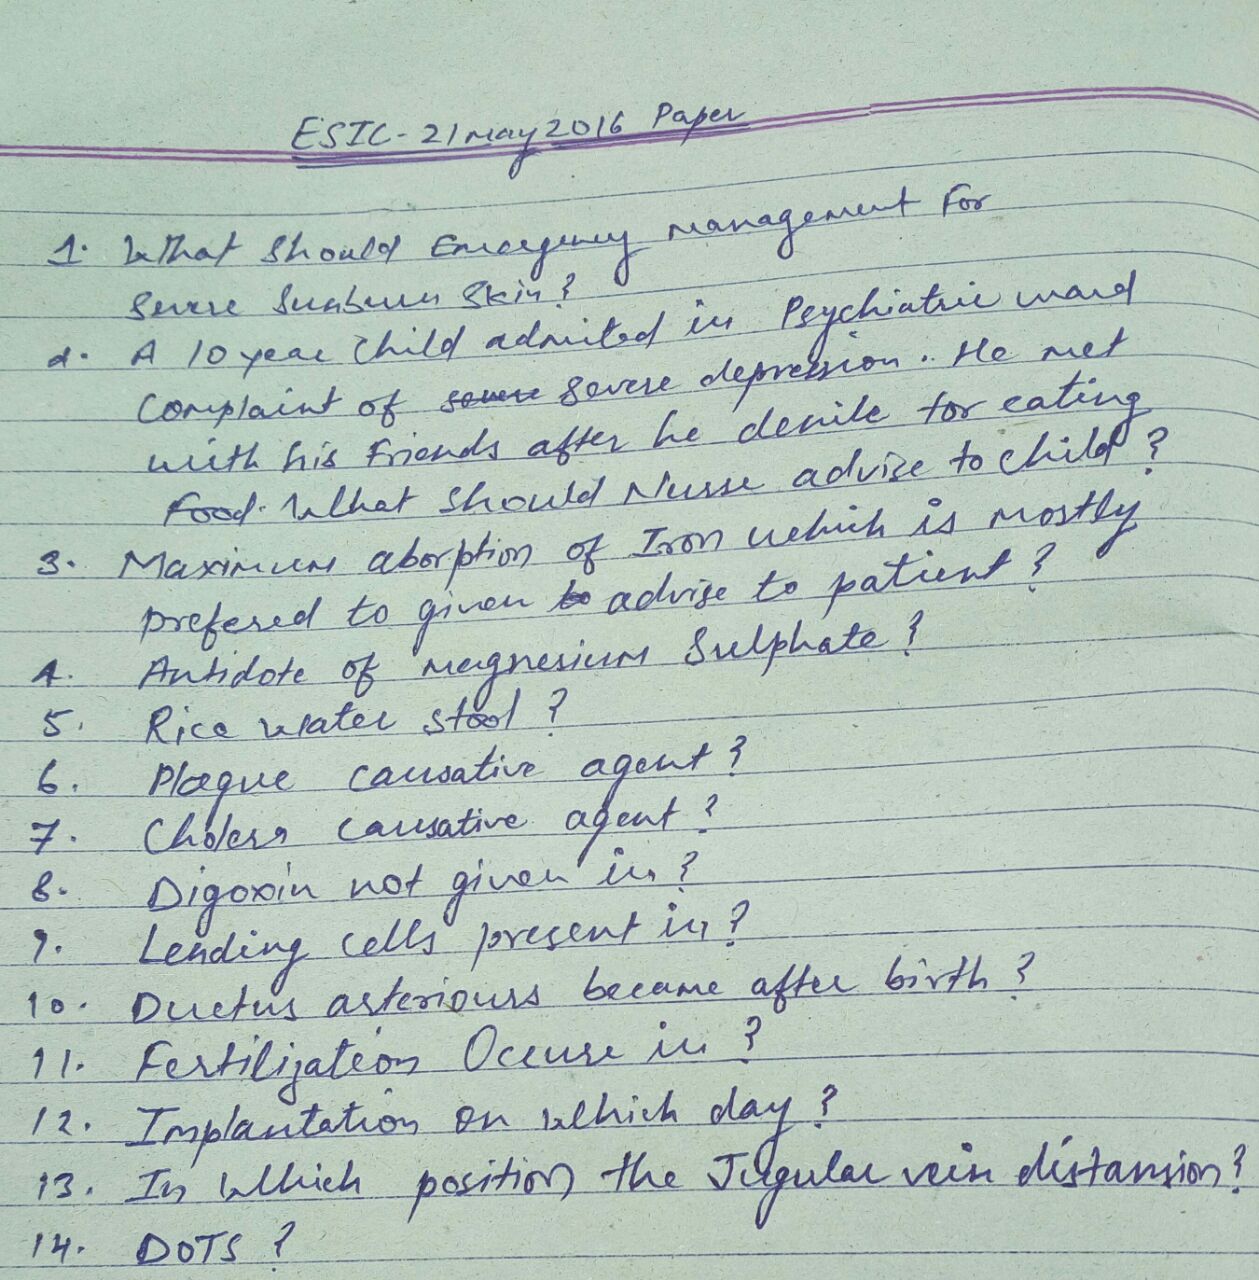 ESIC - 21 may 2016 Paper
1. What should Emergency management For
severe sunburn skin?
2. A 10 year child admitted in Psychiatric ward
complaint of severe depression. He met
with his friends after he denile for eating
food. What should Nurse advise to child?
3. Maximum aborption of Iron which is mostly
prefered to given advise to patient?
4. Antidote of magnesium Sulphate?
5. Rice water stool?
6. Plague causative agent?
7. Cholera causative agent?
8. Digoxin not given in?
9. Lending cells present in?
10. Ductus arteriouss became after birth?
11. Fertilization Occure in?
12. Implantation on which day?
13. In which position the Jugular vein distansion?
14. DOTS?